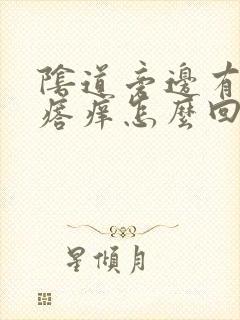 陰道旁邊有
瘩癢怎麼回
星傾月